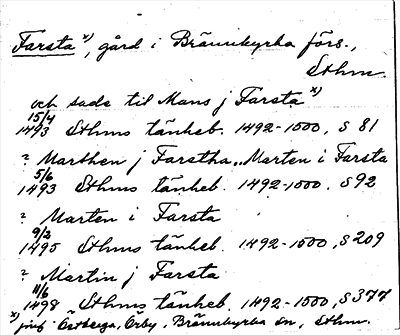 Farsta x), gård i Brännkyrka förs.,
Sthm
och sade til Mans j Farsta x)
15/4
1493 Sthms tänkeb. 1492-1500, S 81
? Marthen j Farstha,, Marten i Farsta
5/6
1493 Sthms tänkeb. 1492-1500. S 92
? Marten i Farsta
9/2
1495 Sthms tänkeb. 1492-1500, S 209
? Martin j Farsta
11/6
1498 Sthms tänkeb. 1492-1500, S 377
x) jmf Östberga, Örby, Brännkyrka sn, Sthm.